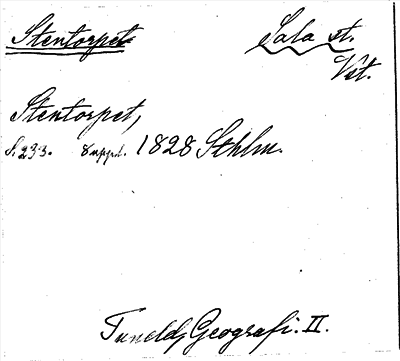 Stentorpet
Sala st.
Vst.
Stentorpet,
S. 233. 8 uppl. 1828 Sthlm.
Tunelds Geografi. II.